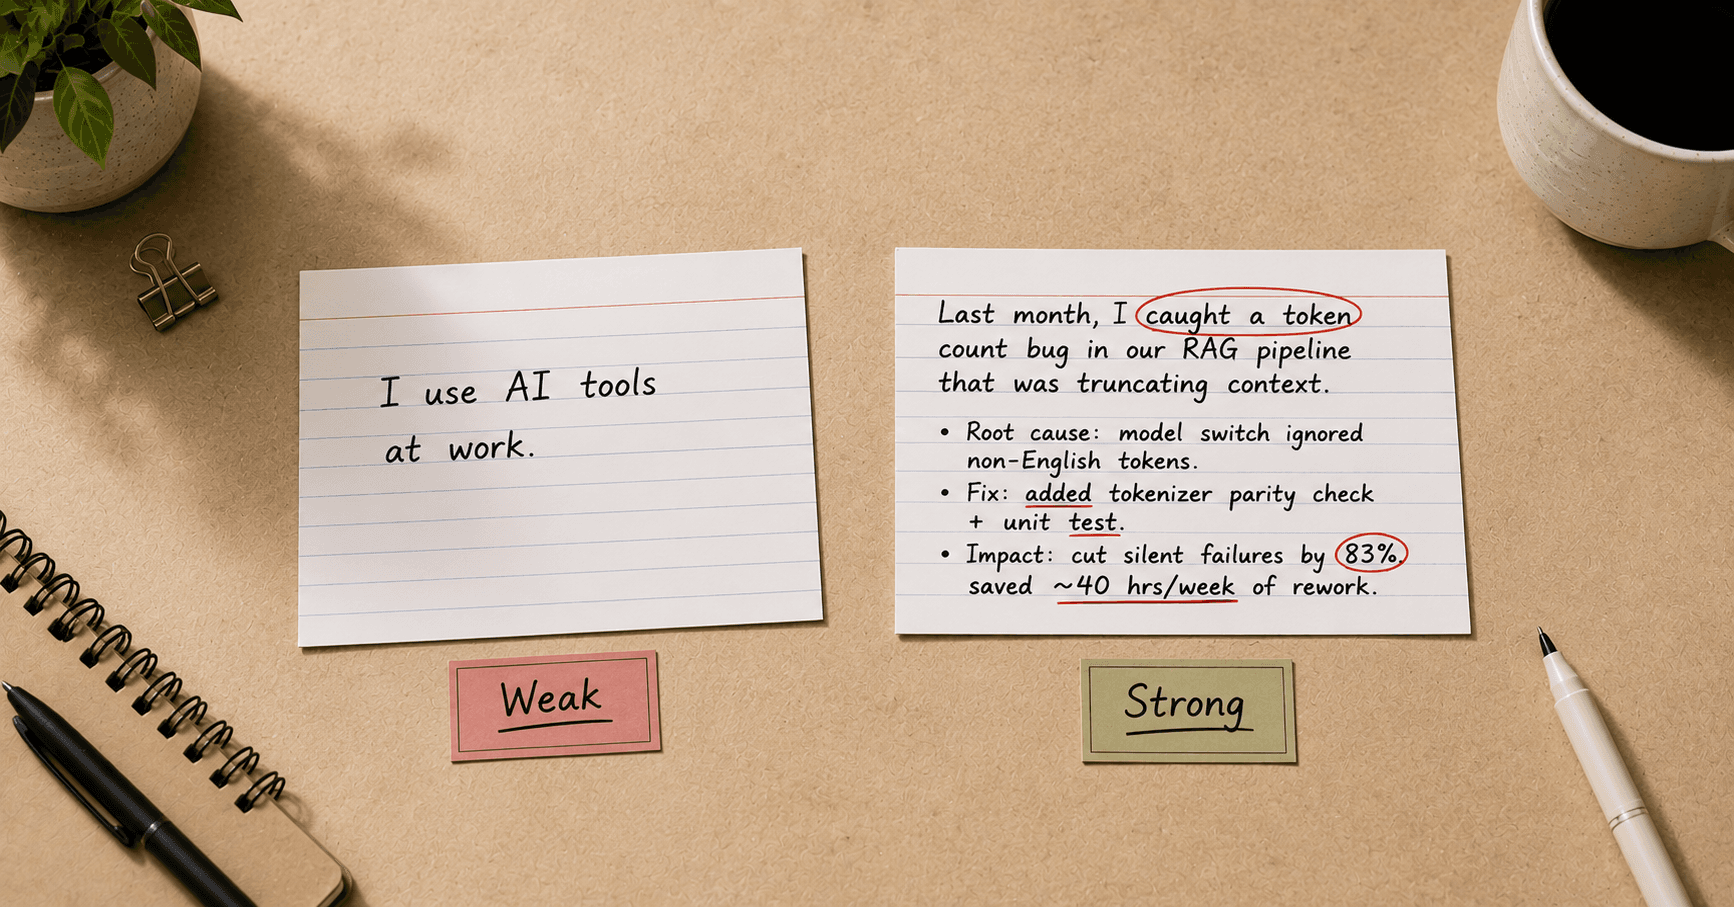 I use AI tools
at work.
Weak
Last month, I caught a token
count bug in our RAG pipeline
that was truncating context.
• Root cause: model switch ignored
non-English tokens.
• Fix: added tokenizer parity check
+ unit test.
• Impact: cut silent failures by 83%,
saved ~40 hrs/week of rework.
Strong